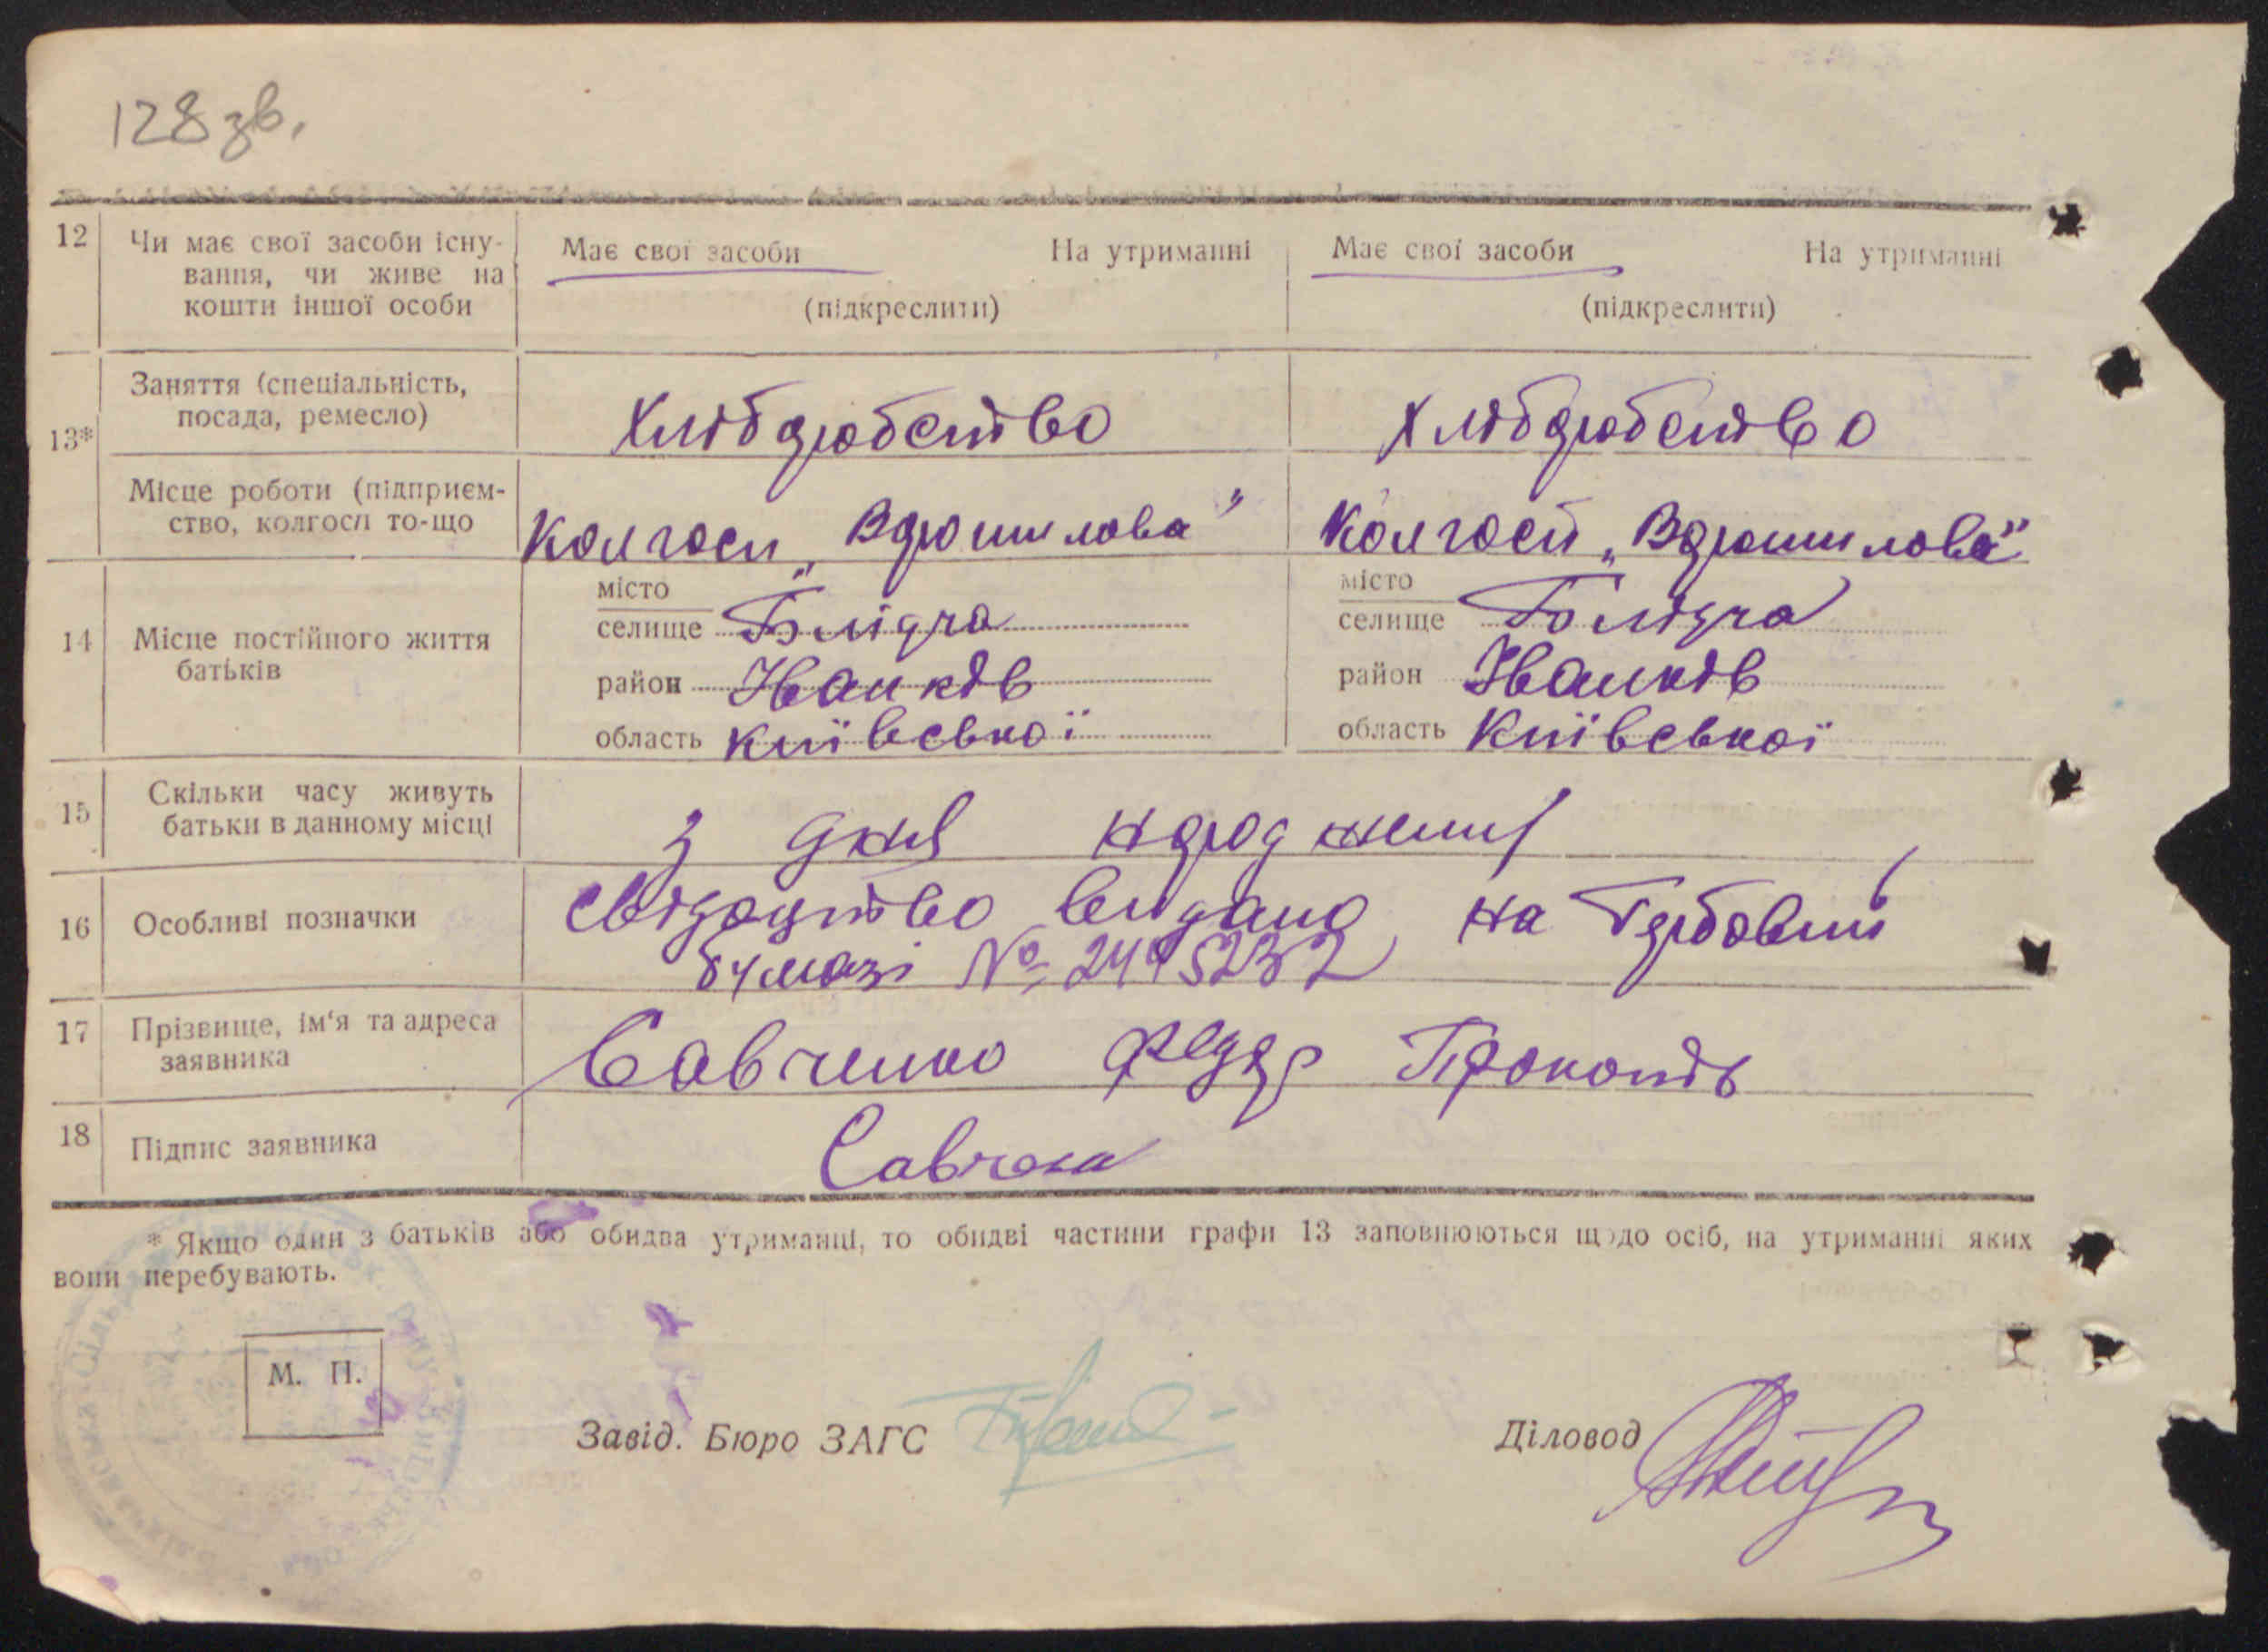 128 зв.
12 Чи має свої засоби існу- Має свої засоби На утриманні Має свої засоби На утриманні
вання, чи живе на
кошти іншої особи (підкреслити) (підкреслити)
Заняття (спеціальність,
посада, ремесло) Хліборобство Хліборобство
13*
Місце роботи (підприєм-
ство, колгосп то-що Колгосп „Ворошилова" Колгосп „Ворошилова"
місто місто
14 Місце постійного життя селище Блідча селище Блідча
батьків район Іванків район Іванків
область Київської область Київської
15 Скільки часу живуть
батьки в данному місці з дня народження
16 Особливі позначки Свідоцтво видано на Гербовий
бумазі №
17 Прізвище, ім'я та адреса
заявника Савченко Федор Прокопів
18 Підпис заявника
* Якщо один з батьків або обидва утриманці, то обидві частини графи 13 заповнюються щодо осіб, на утриманні яких
вони перебувають.
М. П.
Завід. Бюро ЗАГС Діловод